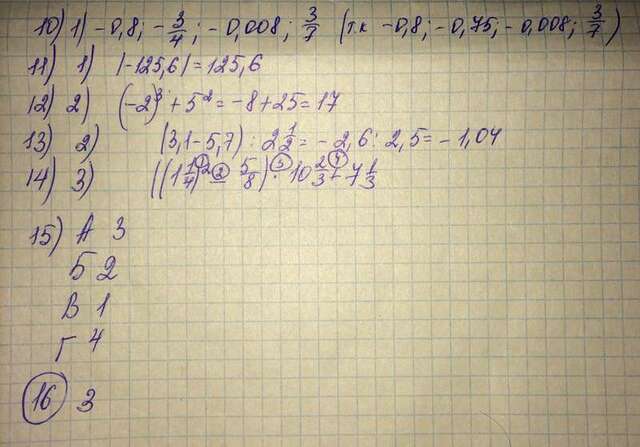 10) 1) -0,8; -3/4; -0,008; 3/7 (т.к -0,8; -0,75; -0,008; 3/7)
11) 1) |-125,6|=125,6
12) 2) (-2)³+5²=-8+25=17
13) 2) (3,1-5,7) : 2 1/2 = -2,6 : 2,5 = -1,04
14) 3) ((1 1/4)^① ² -^② 5/8) ·^③ 10 2/3 +^④ 7 1/3
15) А 3
Б 2
В 1
Г 4
16 3